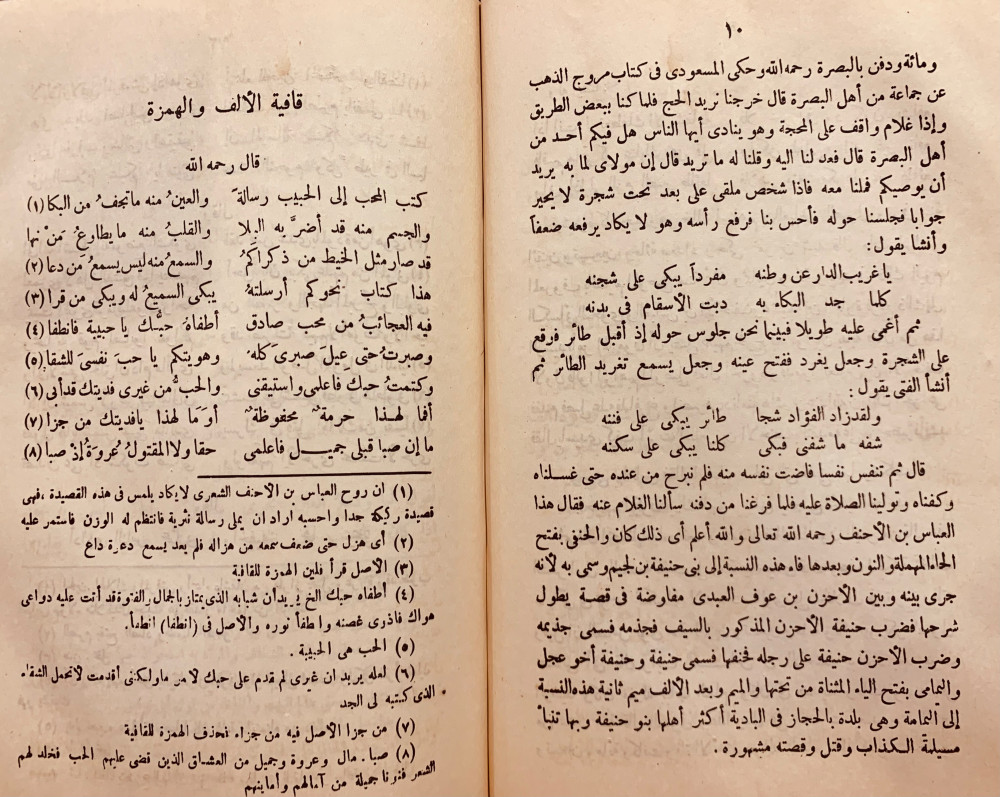 ١٠
ومائة ودفن بالبصرة رحمه الله وحكى المسعودى فى كتاب مروج الذهب
عن جماعة من أهل البصرة قال خرجنا نريد الحج فلما كنا ببعض الطريق
وإذا غلام واقف على المحجة وهو ينادى أيها الناس هل فيكم أحد من
أهل البصرة قال فعدلنا اليه وقلنا له ما تريد قال إن مولاى لما به يريد
أن يوصيكم فملنا معه فاذا شخص ملقى على بعد تحت شجرة لا يحير
جوابا فجلسنا حوله فأحس بنا فرفع رأسه وهو لا يكاد يرفعه ضعفاً
وأنشا يقول:
يا غريب الدار عن وطنه مفرداً يبكى على شجنه
كلما جد البكاء به دبت الأسقام فى بدنه
ثم أغمى عليه طويلا فبينما نحن جلوس حوله إذ أقبل طائر فوقع
على الشجرة وجعل يغرد ففتح عينه وجعل يسمع تغريد الطائر ثم
أنشأ الفتى يقول:
ولقد زاد الفؤاد شجا طائر يبكى على فننه
شفه ما شفنى فبكى كلنا يبكى على سكنه
قال ثم تنفس نفسا فاضت نفسه منه فلم نبرح من عنده حتى غسلناه
وكفناه وتولينا الصلاة عليه فلما فرغنا من دفنه سألنا الغلام عنه فقال هذا
العباس بن الأحنف رحمه الله تعالى والله أعلم أى ذلك كان والحنفى بفتح
الحاء المهملة والنون وبعدها فاء هذه النسبة إلى بنى حنيفة بن لجيم وسمى به لأنه
جرى بينه وبين الأحزن بن عوف العبدى مفاوضة فى قصة يطول
شرحها فضرب حنيفة الأحزن المذكور بالسيف فجذمه فسمى جذيمه
وضرب الأحزن حنيفة على رجله فحنفها فسمى حنيفة وحنيفة أخو عجل
واليمامى بفتح الياء المثناة من تحتها والميم وبعد الألف ميم ثانية هذه النسبة
إلى اليمامة وهى بلدة بالحجاز فى البادية أكثر أهلها بنو حنيفة وبها تنبأ
مسيلمة الكذاب وقتل وقصته مشهورة.
قافية الألف والهمزة
قال رحمه الله
كتب المحب إلى الحبيب رسالة والعينُ منه ماتجفُ من البكا (١)
والجسم منه قد أضرَّ به البلا والقلبُ منه ما يطاوعُ مَنْ نها
قد صار مثل الخيط من ذكراكمُ والسمعُ منه ليس يسمعُ من دعا (٢)
هذا كتاب نحوكم أرسلتهُ يبكى السميعُ له ويبكى من قرا (٣)
فيه العجائبُ من محب صادق أطفاهُ حبُّك يا حبيبة فانطفا (٤)
وصبرتُ حتى عِيلَ صبرى كلهُ وهويتكم يا حبَ نفسىَ للشقا (٥)
وكتمتُ حبك فاعلمى واستيقنى والحبُّ من غيرى فديتك قد أبى (٦)
أفا لهذا حرمة محفوظة أوَ ما لهذا يافديتك من جزا (٧)
ما إن صبا قبلى جميل فاعلمى حقا ولا المقتولُ عُروةُ إذ صبا (٨)
(١) ان روح العباس بن الأحنف الشعرى لايكاد يلمس فى هذه القصيدة، فهى
قصيدة ركيكة جدا واحسبه اراد ان يملى رسالة نثرية فانتظم له الوزن فاستمر عليه
(٢) أى هزل حتى ضعف سمعه من هزاله فلم بعد يسمع دعوة داع
(٣) الأصل قرأ فلين الهمزة للقافية
(٤) أطفاه حبك الخ يريد أن شبابه الذى يمتاز بالجمال والفتوة قد أتت عليه دواعى
هواك فاذوى غصنه واطفأ نوره والأصل فى (انطفا) انطفأ.
(٥) الحب هى الحبيبة.
(٦) لعله يريد ان غيرى لم قدم على حبك لامر ما ولكننى أقدمت لأتحمل الشقاء
الذى كتبته لى الجد
(٧) من جزا الأصل فيه من جزاء فحذف الهمزة للقافية
(٨) صبا. مال وعروة وجميل من العشاق الذين قضى عليهم الحب فخلد لهم
الشعر فنونا جميلة من آمالهم وأمانيهم